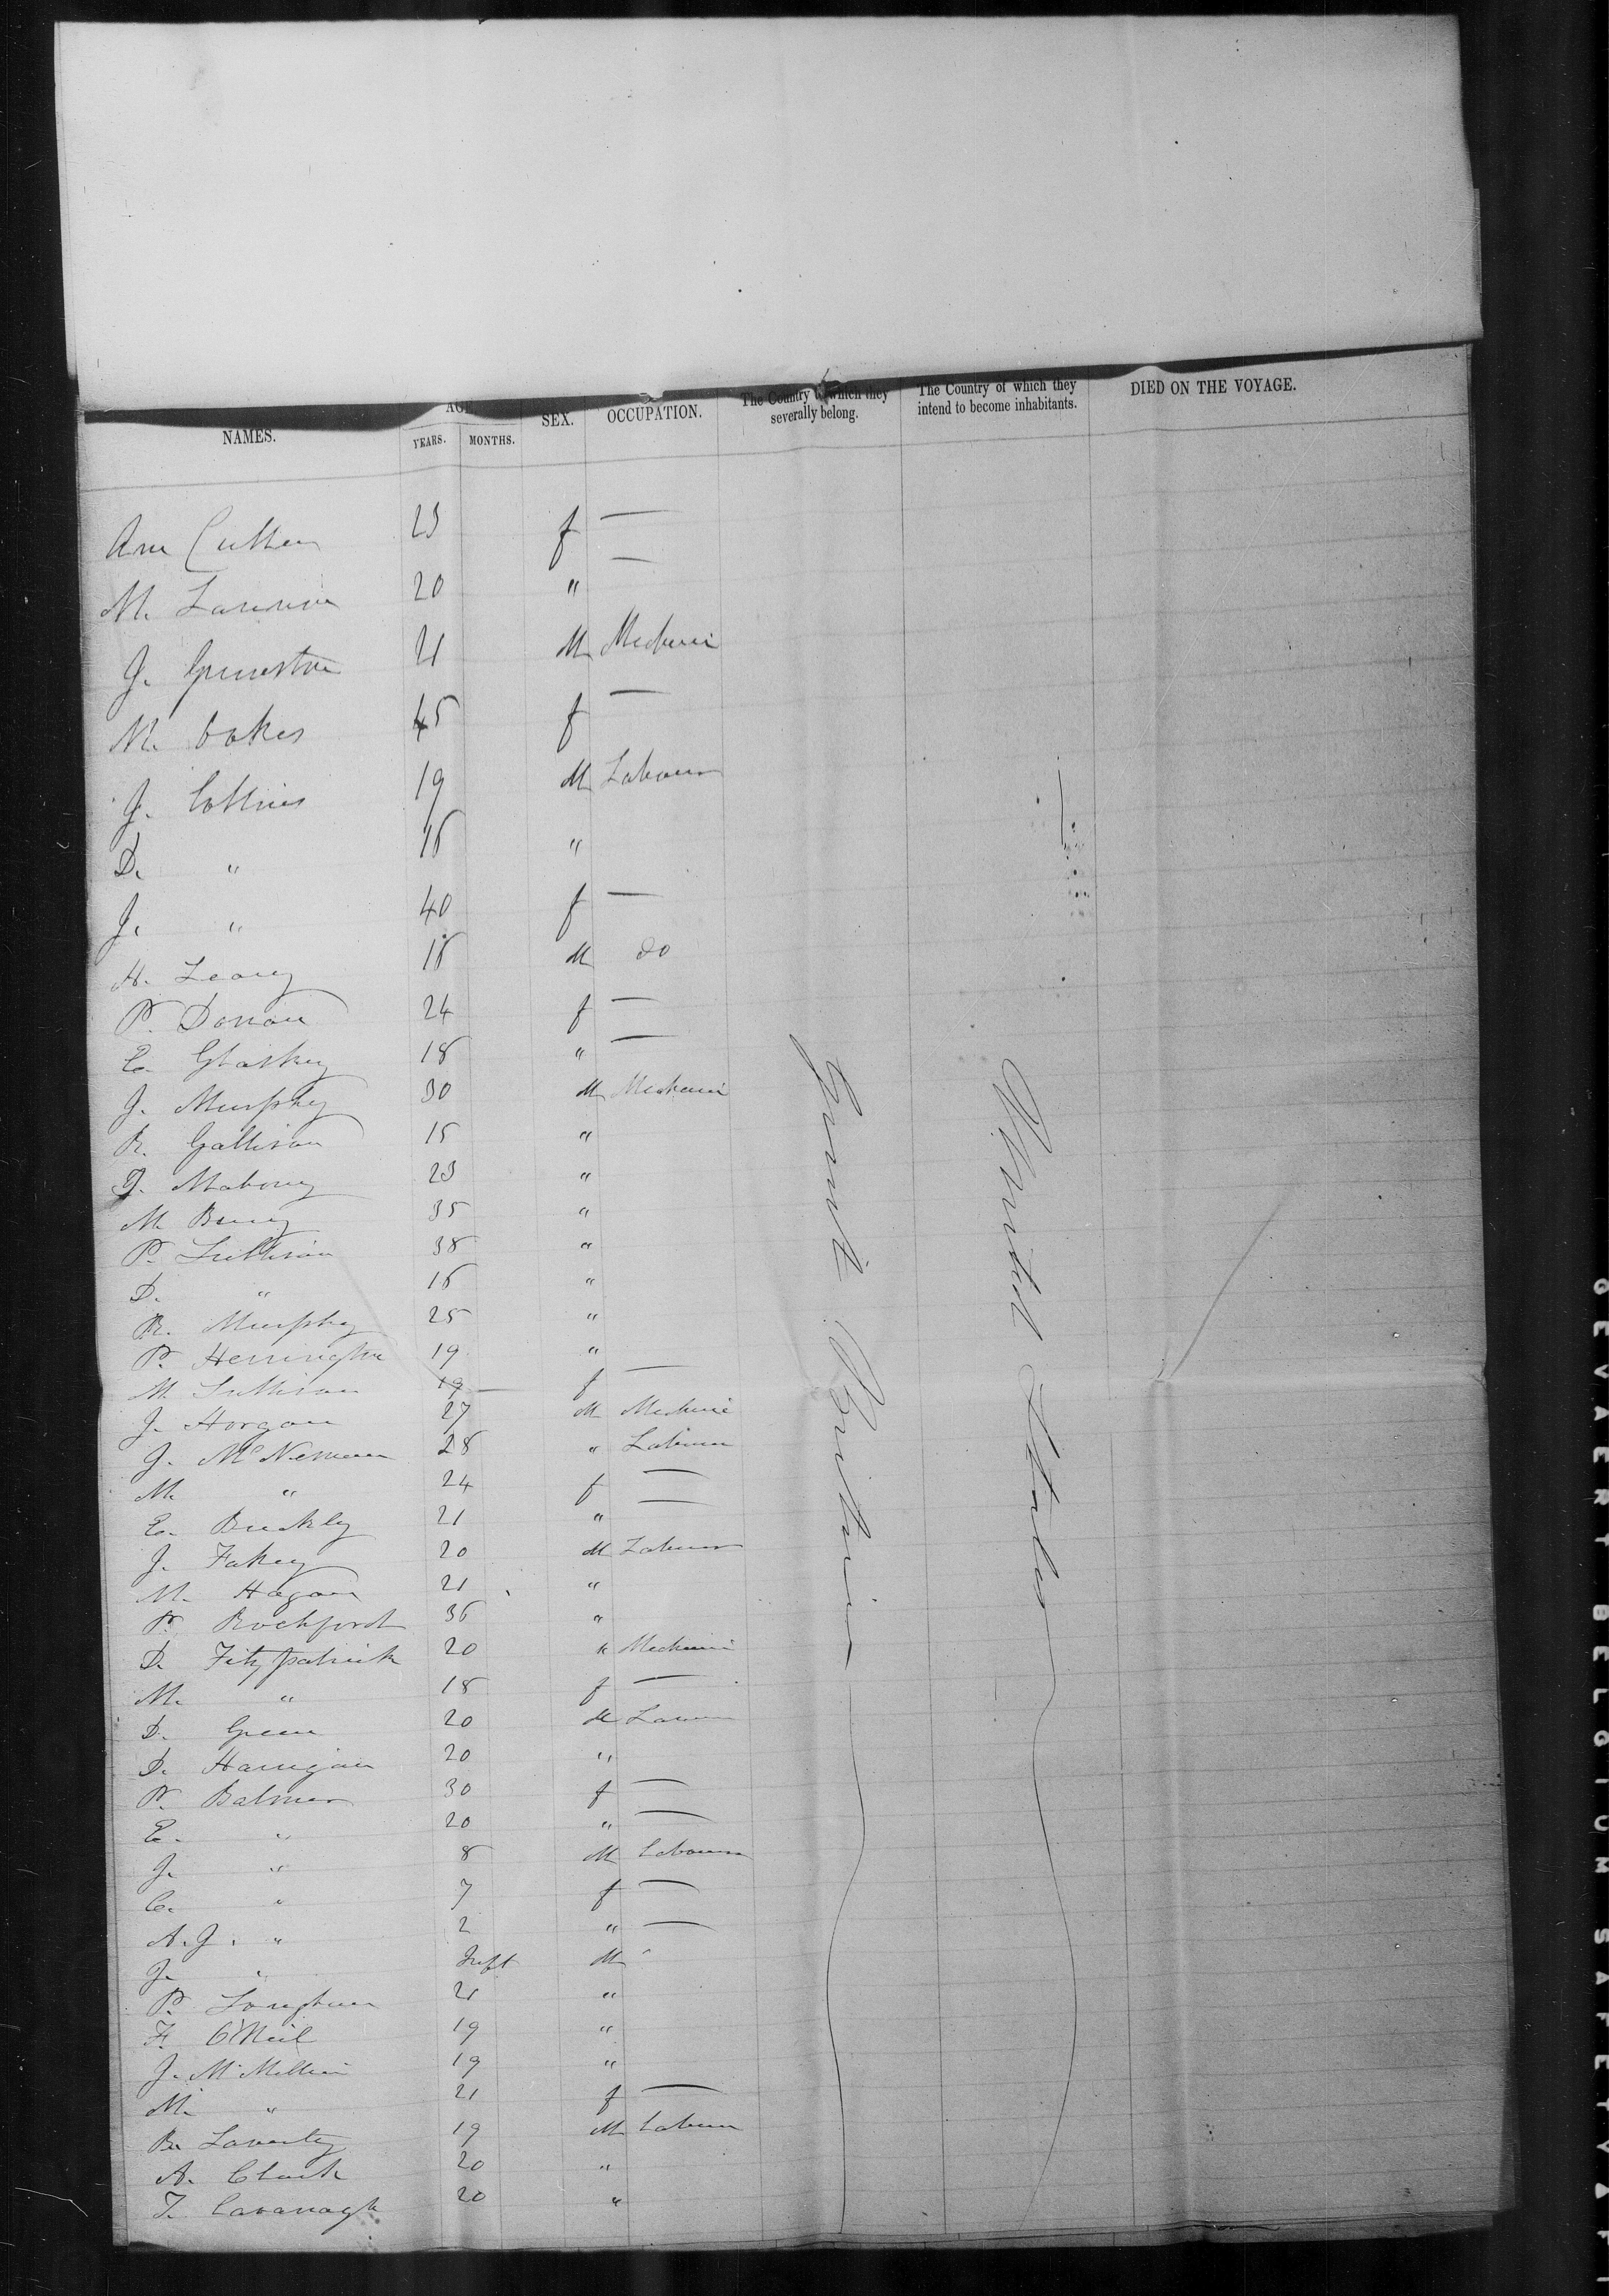 NAMES. AGE YEARS. MONTHS. SEX. OCCUPATION. The Country to which they severally belong. The Country of which they intend to become inhabitants. DIED ON THE VOYAGE.
Great Britain
United States
Ann Cullen 23 f —
M. 20 " —
J. 21 M Mechanic
M. Oakes 45 f —
J. Collins 19 M Labourer
D. " 16 "
J. " 40 f —
H. Leary 18 M do
P. Donan 24 f —
E. Gloskey 18 " —
J. Murphy 30 M Mechanic
R. Gallivan 15 "
J. Mahoney 23 "
M 35 "
P. Sullivan 38 "
D. " 16 "
R. Murphy 25 "
P. Herrington 19 "
M Sullivan 19 f —
J. Horgan 27 M Mechanic
J. 28 " Labourer
M. " 24 f —
E. Buckly 21 " —
J. Fahey 20 M Labourer
M. Hagan 21 "
P. Rochford 36 "
D. Fitzpatrick 20 " Mechanic
M. " 18 f —
D. Green 20 M
D. Harrigan 20 "
P. Balmer 30 f —
E. " 20 " —
J. " 8 M Labourer
C. " 7 f —
A. J. " 2 " —
J. " Inft M
P. 21 "
F. O'Neil 19 "
J. McMillen 19 "
M. " 21 f —
B. Laverty 19 M Labourer
A. Clark 20 "
T. Cavanagh 20 "
GEVAERT BELGIUM SAFETY